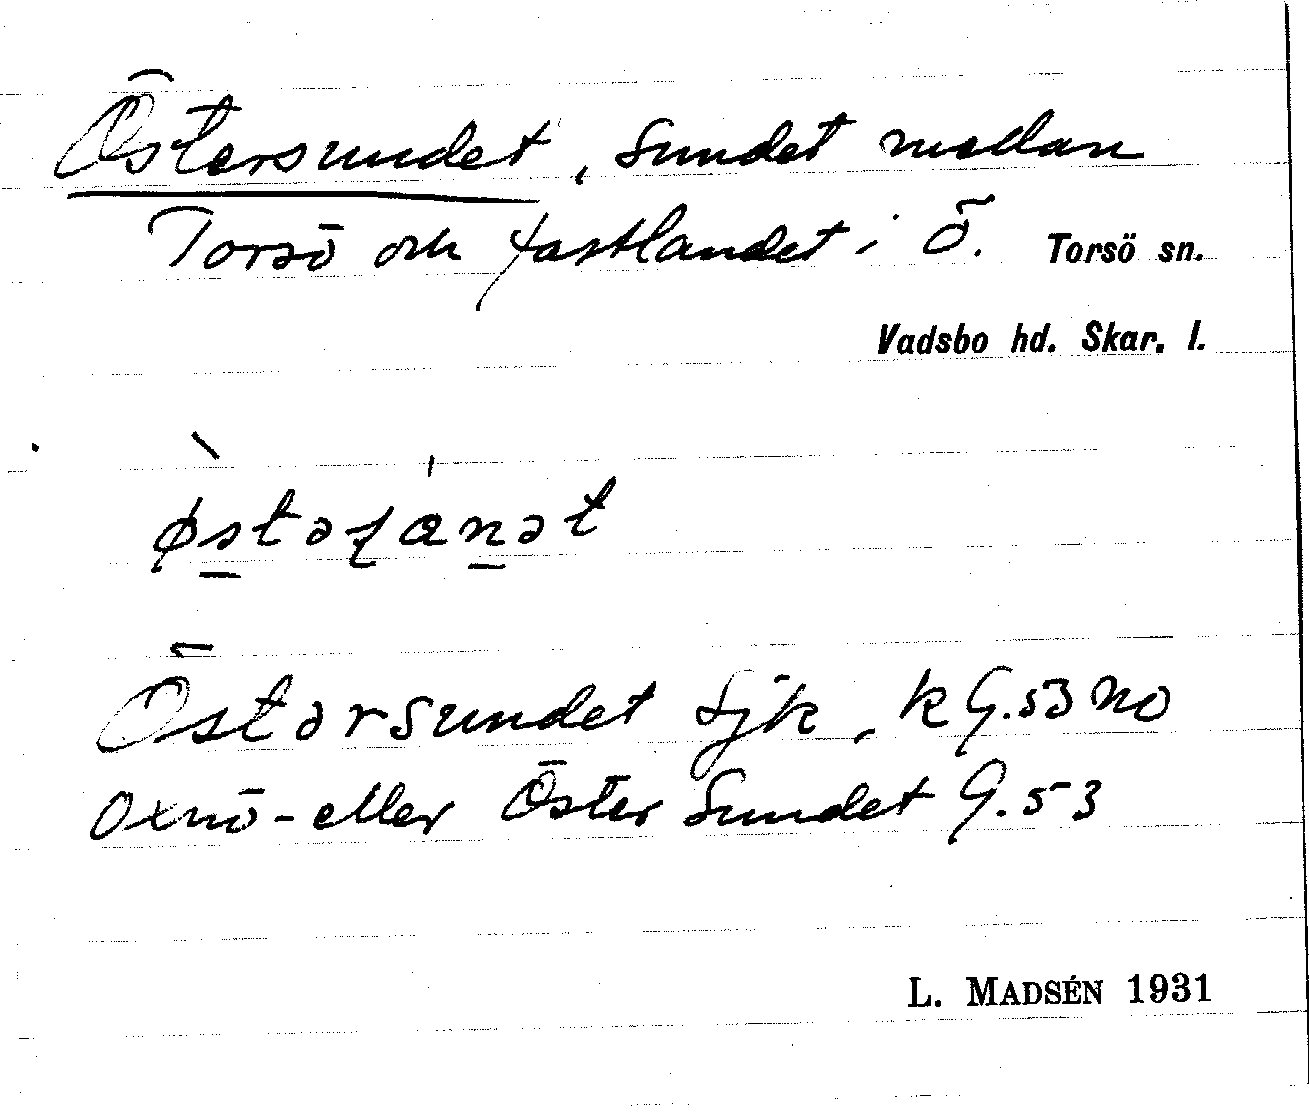 Östersundet, sundet mellan
Torsö och fastlandet i Ö. Torsö sn.
Vadsbo hd. Skar. l.
Östersundet Sjk, k G.53 NO
Oxnö- eller Öster Sundet G.53
L. MADSÉN 1931